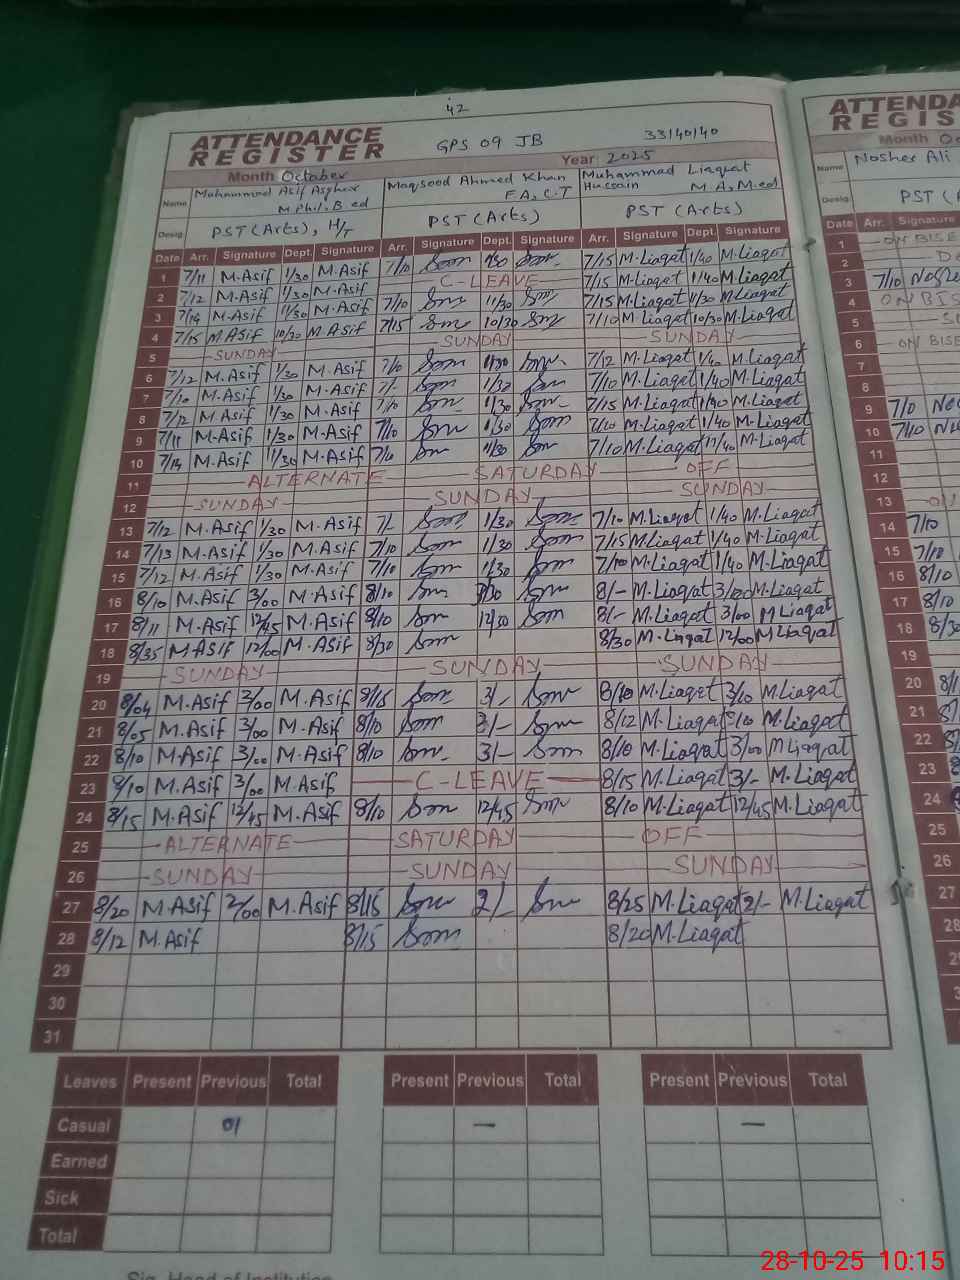 42
ATTENDANCE REGISTER GPS 09 JB 33140140
Year 2025
Month October
Name Muhammad Asif Asghar M.Phil. B.ed Maqsood Ahmed Khan F.A, C.T Muhammad Liaquat Hussain M.A, M.ed
Desig. PST (Arts), H/T PST (Arts) PST (Arts)
Date Arr. Signature Dept. Signature Arr. Signature Dept. Signature Arr. Signature Dept. Signature
1 7/11 M.Asif 1/30 M.Asif 7/10 1/30 7/15 M.Liaqat 1/40 M.Liaqat
2 7/12 M.Asif 1/30 M.Asif C-LEAVE 7/15 M.Liaqat 1/40 M.Liaqat
3 7/14 M.Asif 11/30 M.Asif 7/10 11/30 7/15 M.Liaqat 11/30 M.Liaqat
4 7/15 M.Asif 10/30 M.Asif 7/15 10/30 7/10 M.Liaqat 10/30 M.Liaqat
5 SUNDAY SUNDAY SUNDAY
6 7/12 M.Asif 1/30 M.Asif 7/10 1/30 7/12 M.Liaqat 1/40 M.Liaqat
7 7/10 M.Asif 1/30 M.Asif 7/- 1/30 7/10 M.Liaqat 1/40 M.Liaqat
8 7/12 M.Asif 1/30 M.Asif 7/10 1/30 7/15 M.Liaqat 1/40 M.Liaqat
9 7/11 M.Asif 1/30 M.Asif 7/10 1/30 7/10 M.Liaqat 1/40 M.Liaqat
10 7/14 M.Asif 11/30 M.Asif 7/10 11/30 7/10 M.Liaqat 11/40 M.Liaqat
11 ALTERNATE SATURDAY OFF
12 SUNDAY SUNDAY SUNDAY
13 7/12 M.Asif 1/30 M.Asif 7/- 1/30 7/10 M.Liaqat 1/40 M.Liaqat
14 7/13 M.Asif 1/30 M.Asif 7/10 1/30 7/15 M.Liaqat 1/40 M.Liaqat
15 7/12 M.Asif 1/30 M.Asif 7/10 1/30 7/10 M.Liaqat 1/40 M.Liaqat
16 8/10 M.Asif 3/00 M.Asif 8/10 8/- M.Liaqat 3/00 M.Liaqat
17 8/11 M.Asif 12/45 M.Asif 8/10 12/30 8/- M.Liaqat 3/00 M Liaqat
18 8/35 M.Asif 12/00 M.Asif 8/30 8/30 M.Liaqat 12/00 M Liaqat
19 SUNDAY SUNDAY SUNDAY
20 8/04 M.Asif 3/00 M.Asif 8/15 3/- 8/10 M.Liaqat 3/10 M.Liaqat
21 8/05 M.Asif 3/00 M.Asif 8/10 3/- 8/12 M.Liaqat 3/10 M.Liaqat
22 8/10 M.Asif 3/00 M.Asif 8/10 3/- 8/10 M.Liaqat 3/00 M Liaqat
23 8/10 M.Asif 3/00 M.Asif C-LEAVE 8/15 M.Liaqat 3/- M.Liaqat
24 8/15 M.Asif 12/45 M.Asif 8/10 12/45 8/10 M.Liaqat 12/45 M.Liaqat
25 ALTERNATE SATURDAY OFF
26 SUNDAY SUNDAY SUNDAY
27 8/20 M.Asif 2/00 M.Asif 8/15 2/- 8/25 M.Liaqat 2/- M.Liaqat
28 8/12 M.Asif 8/15 8/20 M.Liaqat
29
30
31
Leaves Present Previous Total Present Previous Total Present Previous Total
Casual 01 — —
Earned
Sick
Total
Sig. Head of Institution
ATTENDA
REGIS
Month Oc
Name Nosher Ali
Desig. PST (A
Date Arr. Signature
1 ON BISE
2
3 7/10
4 ON BIS
5
6 ON BISE
7
8
9 7/0
10 7/10
11
12
13
14 7/10
15 7/10
16 8/10
17 8/10
18 8/30
19
20
21
22
23
24
25
26
27
28
28-10-25 10:15